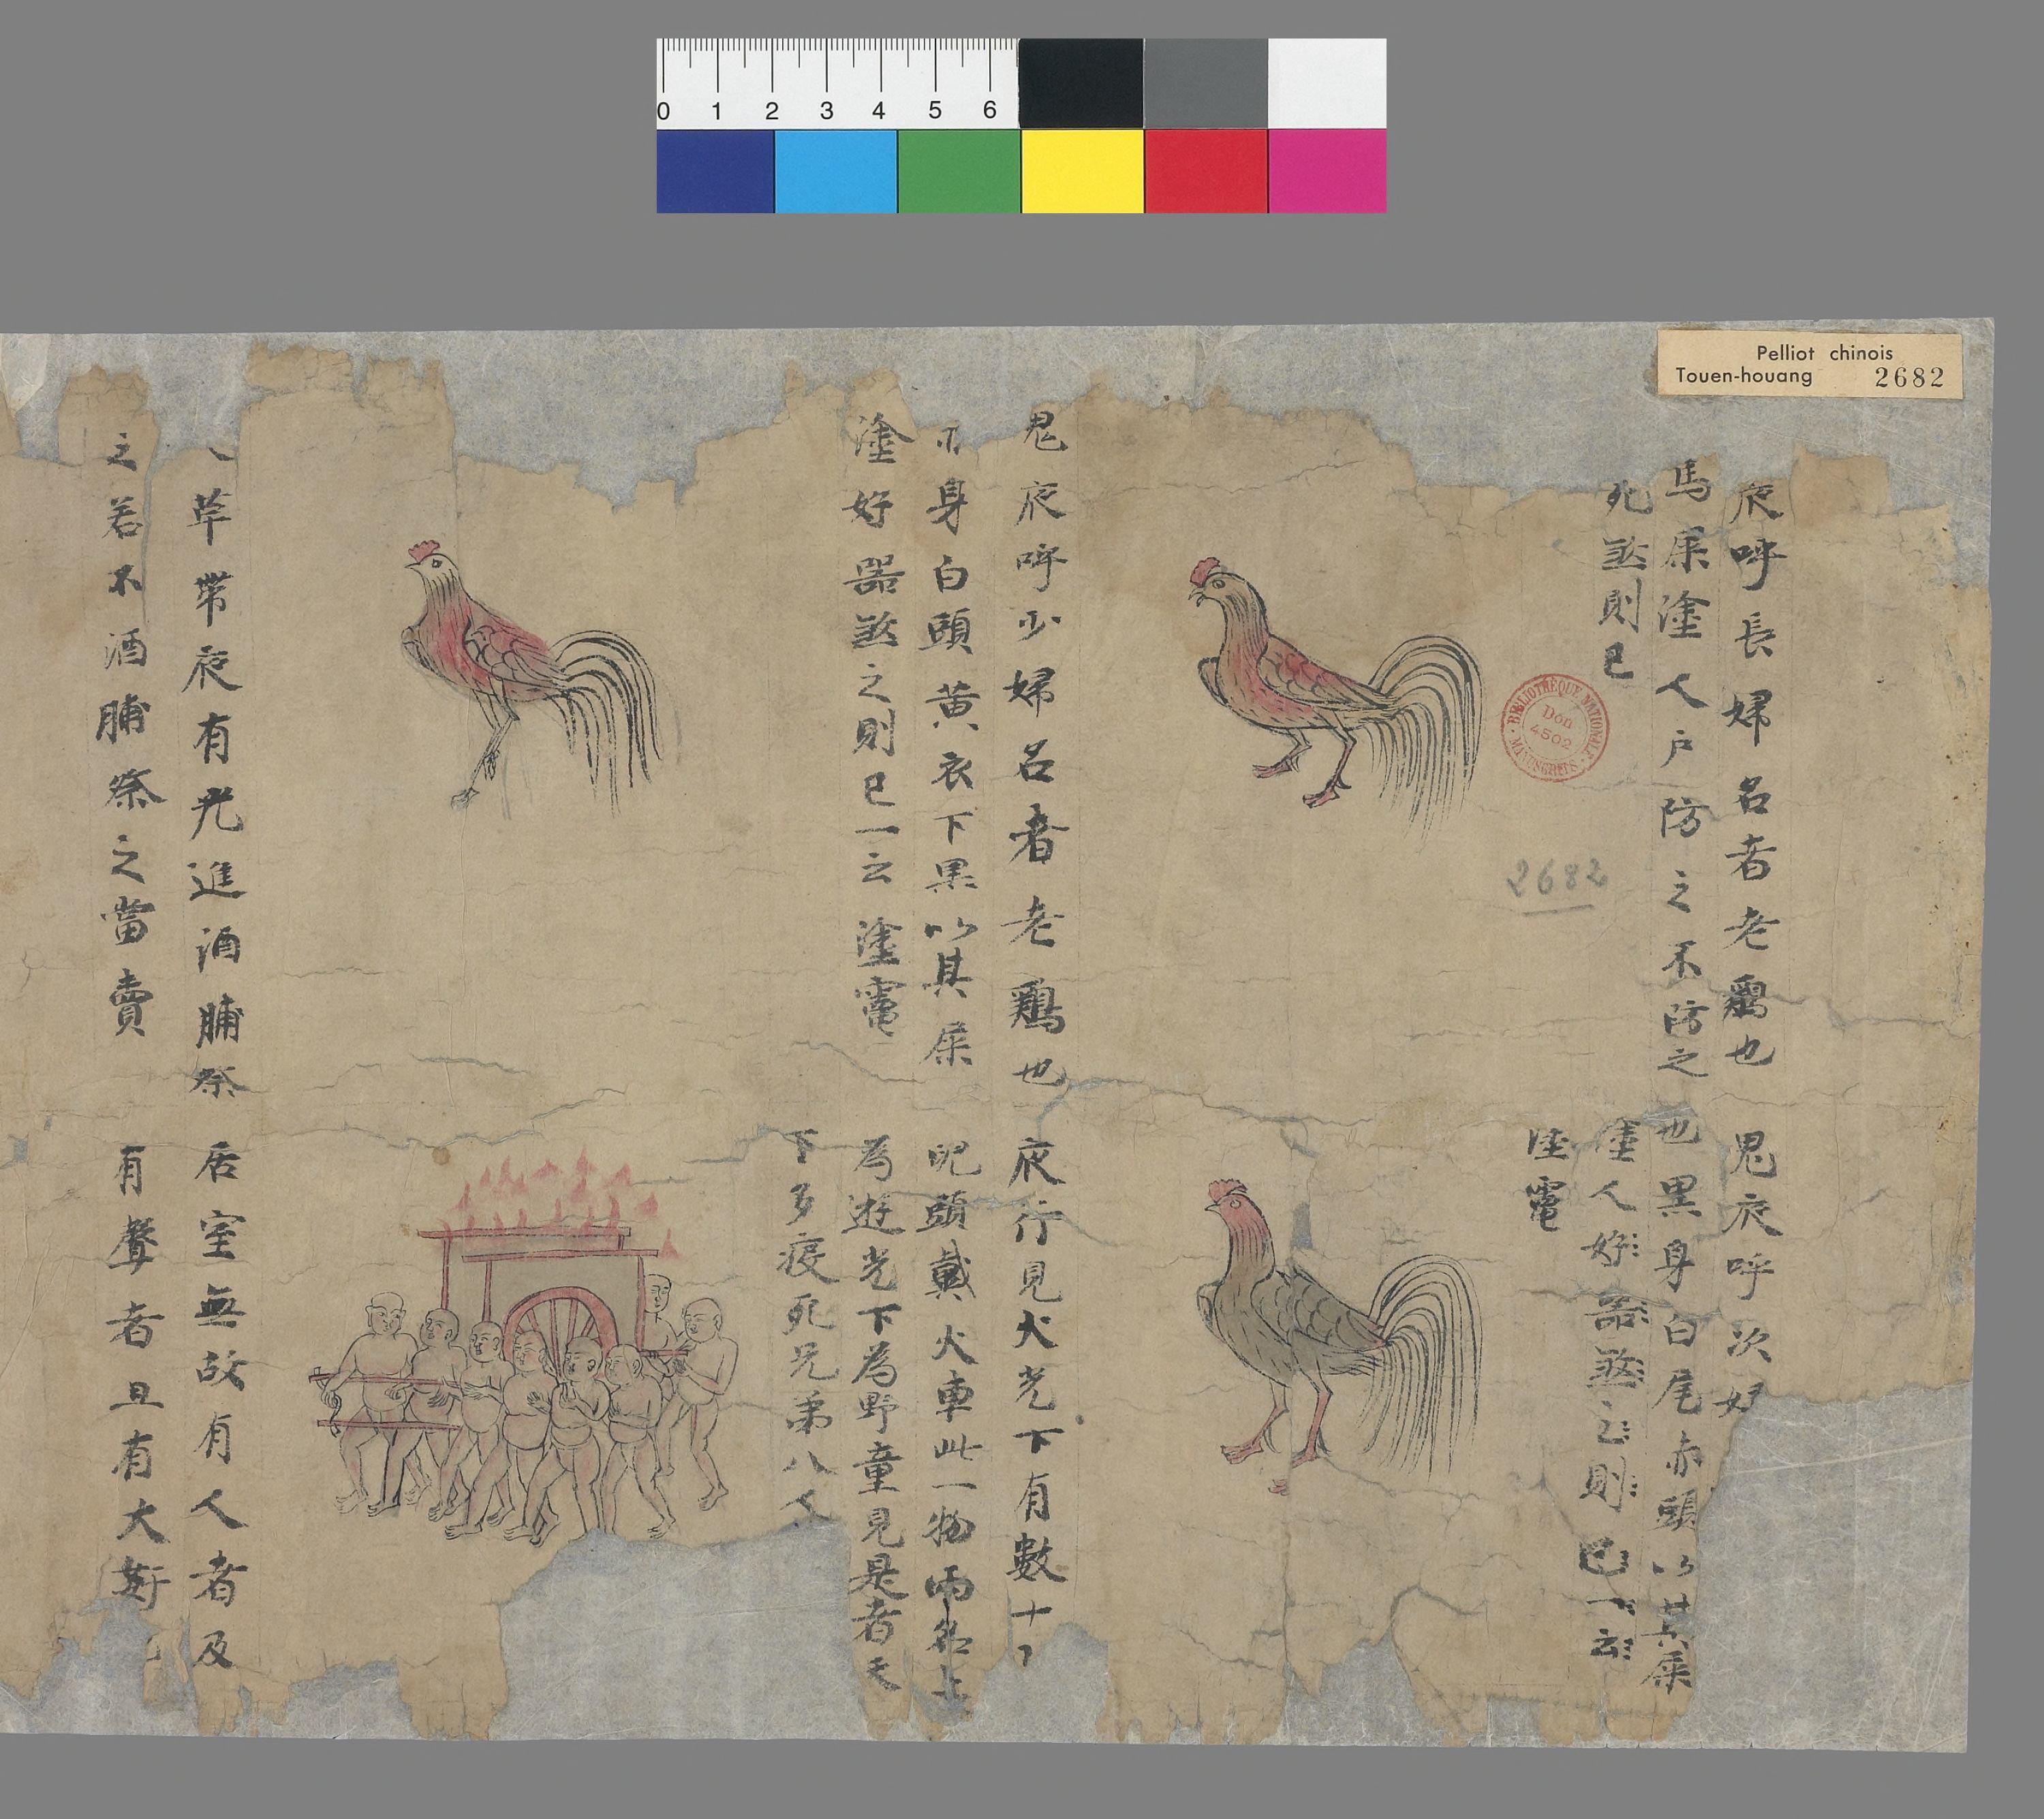 0 1 2 3 4 5 6
Pelliot chinois
Touen-houang 2682
夜呼長婦名者老鷄也
馬屎塗人戶防之不防之
死煞則已
BIBLIOTHÈQUE NATIONALE
Don
4502
MANUSCRITS
2682
鬼夜呼次婦
也黑身白尾赤頭以其屎
塗人好器煞之則已一云
塗竃
鬼夜呼少婦名者老鷄也
身白頭黄衣下黒以其屎
塗好器煞之則已一云塗竃
夜行見火光下有數十
兒頭戴火車此一物兩名上
為遊光下為野童見是者天
下多疫死兄弟八人
草帶夜有光進酒脯祭
之若不酒脯祭之當賣
居室無故有人者及
有聲者且有大